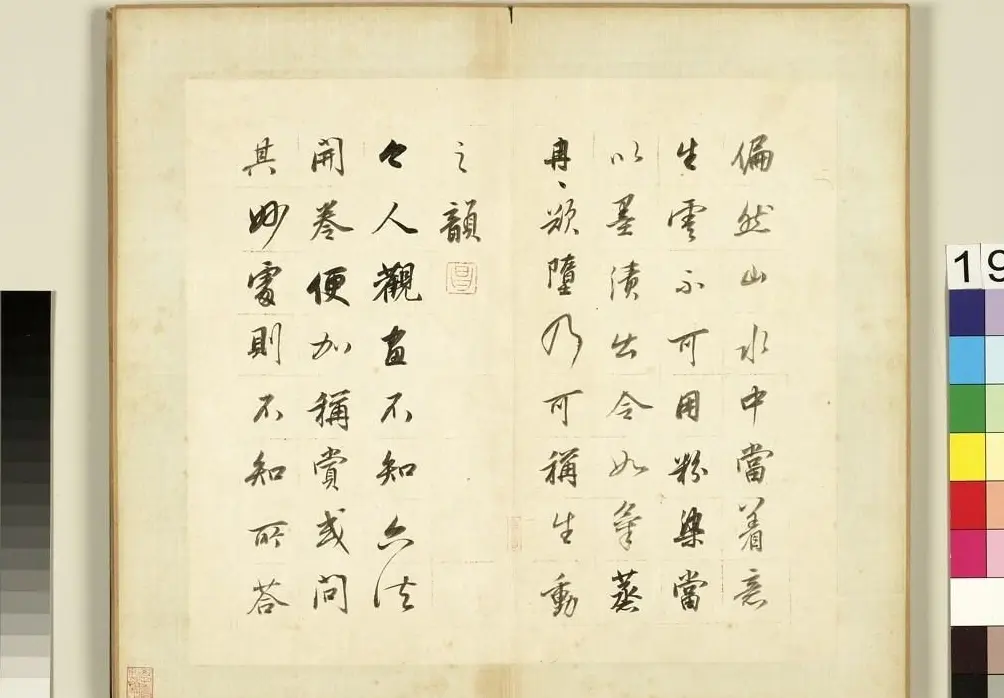 偏然山水中當着意
生雲不可用粉染當
以墨漬出令如氣蒸
冉〻欲墮乃可稱生動
之韻
今人觀畫不知六法
開卷便加稱賞或問
其妙處則不知所答
19